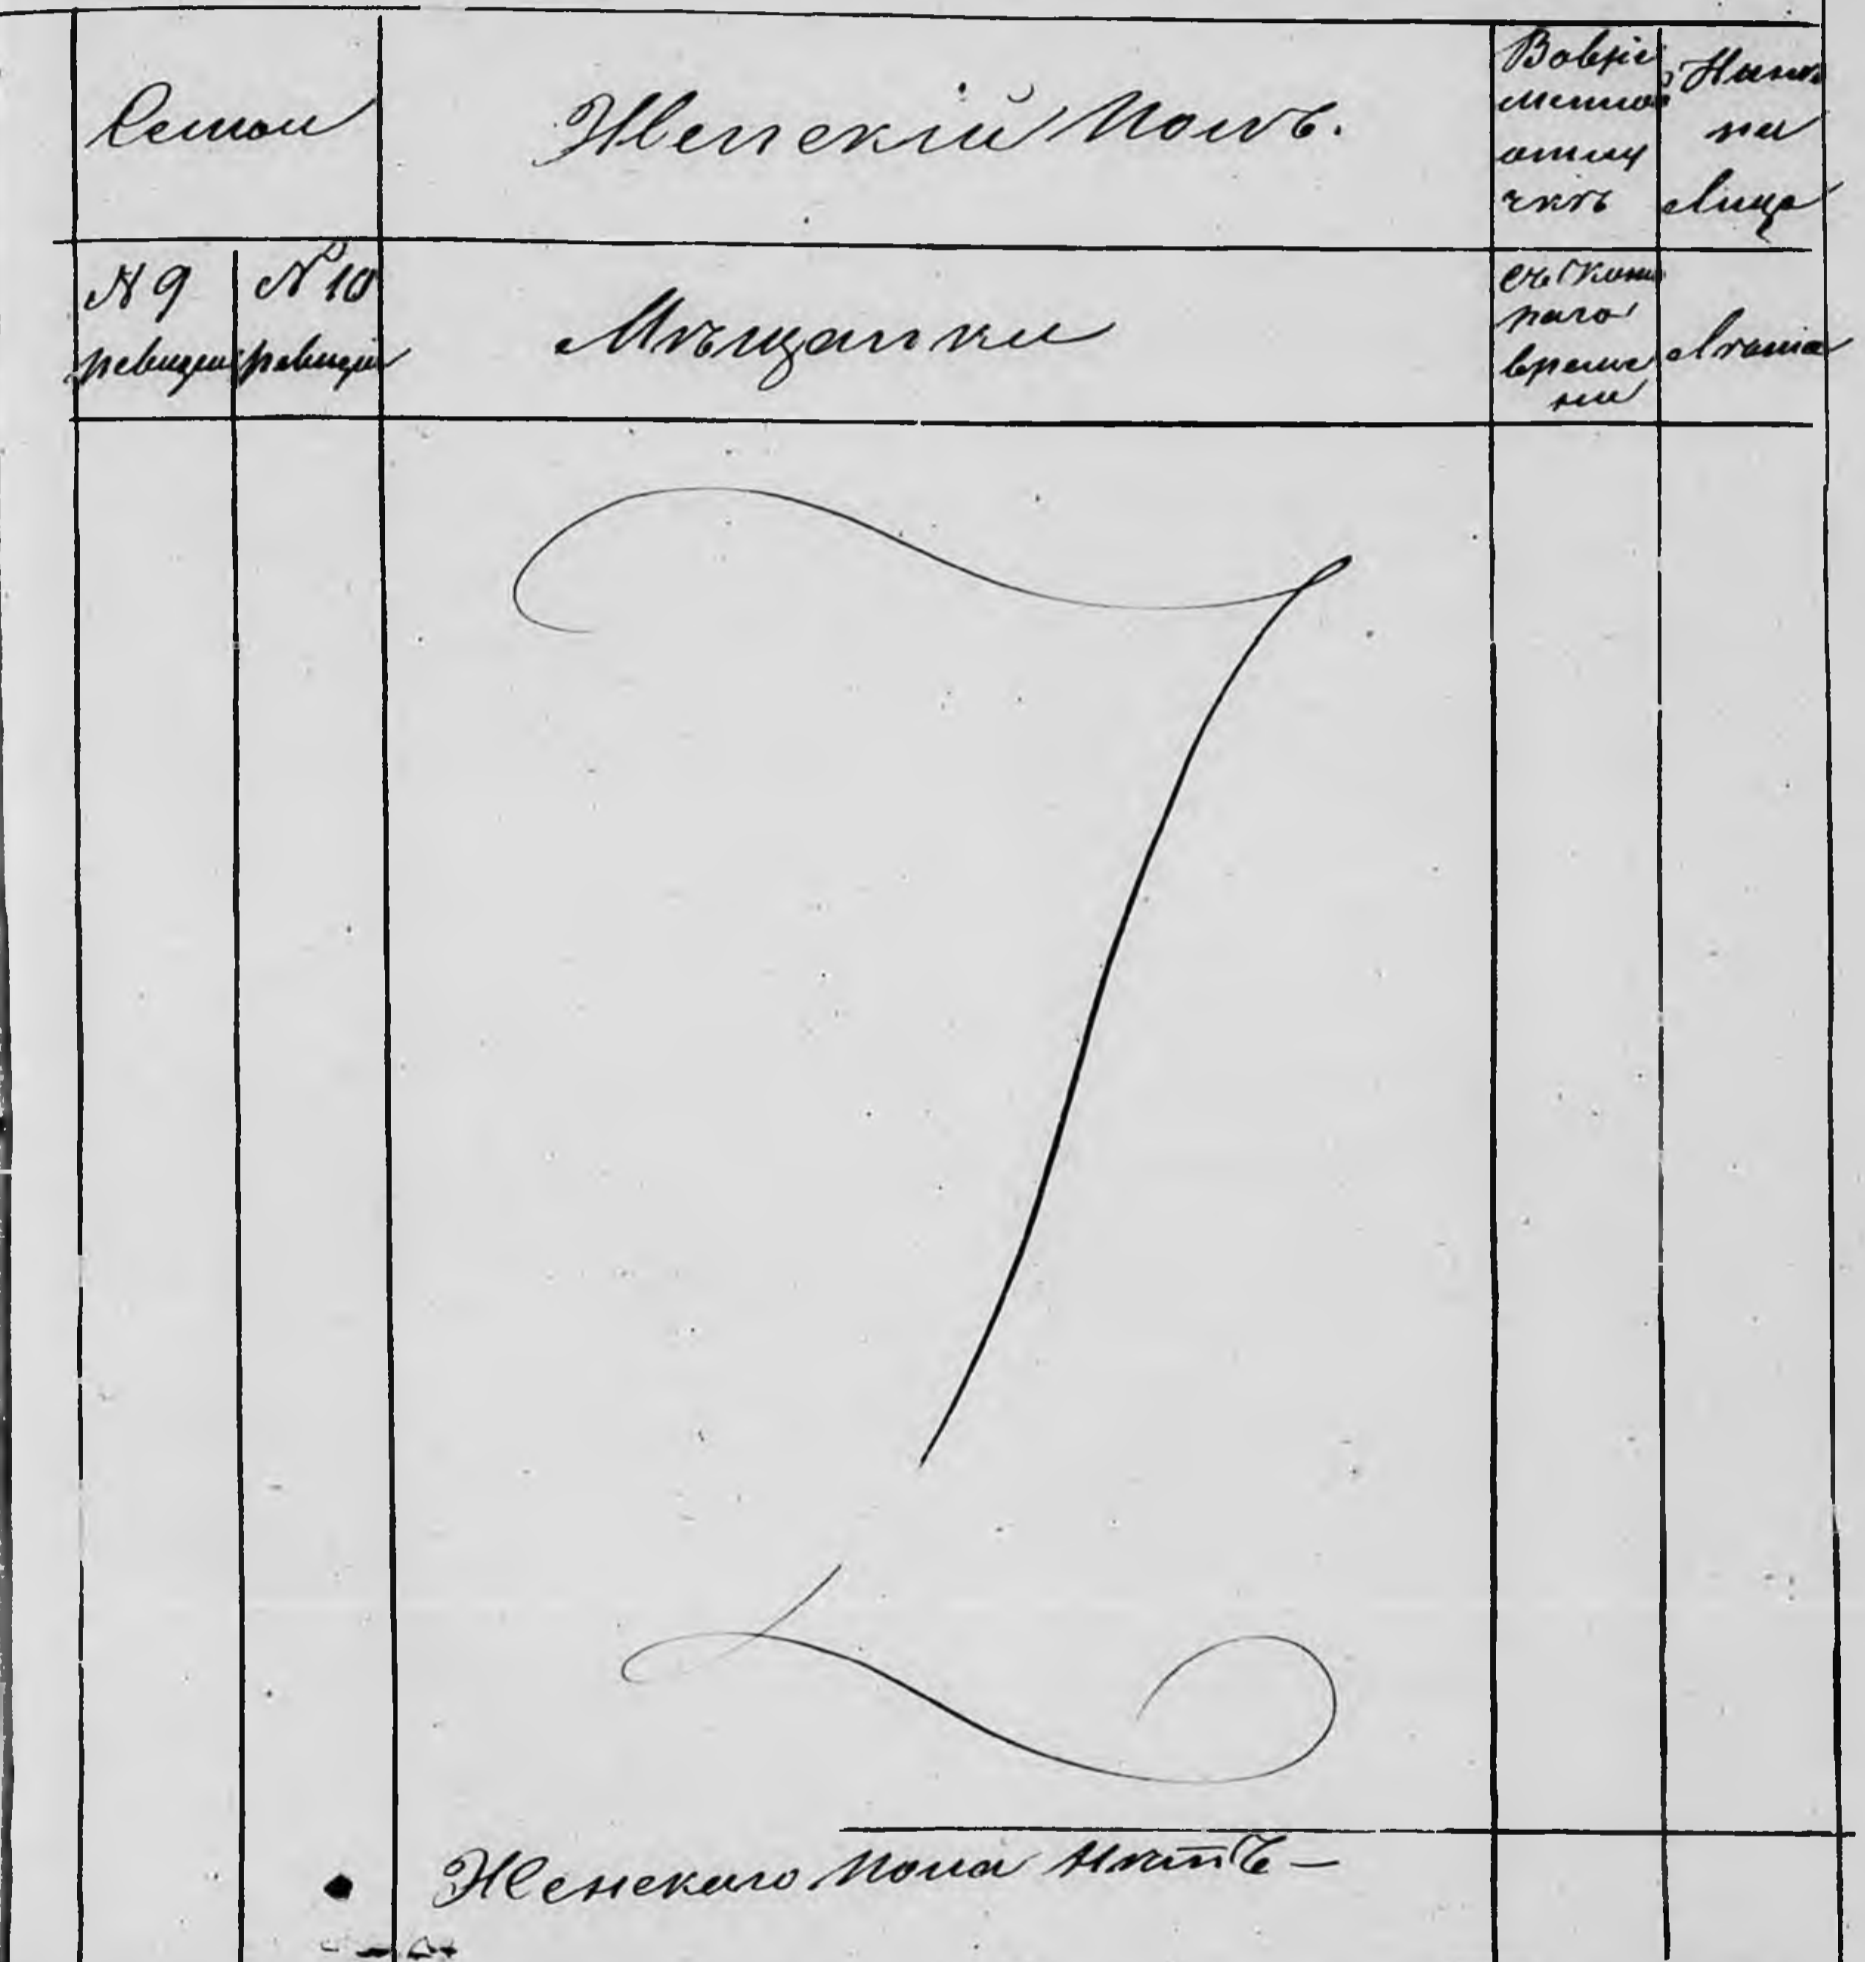 Семьи
Женскій Полъ.
Вовре
менно
отлу
чкѣ
Нынѣ
на
лицо
№ 9
ревизіи
№ 10
ревизіи
Мѣщанки
съ кото
раго
време
ни
лѣта
Женскаго Пола Нѣтъ —